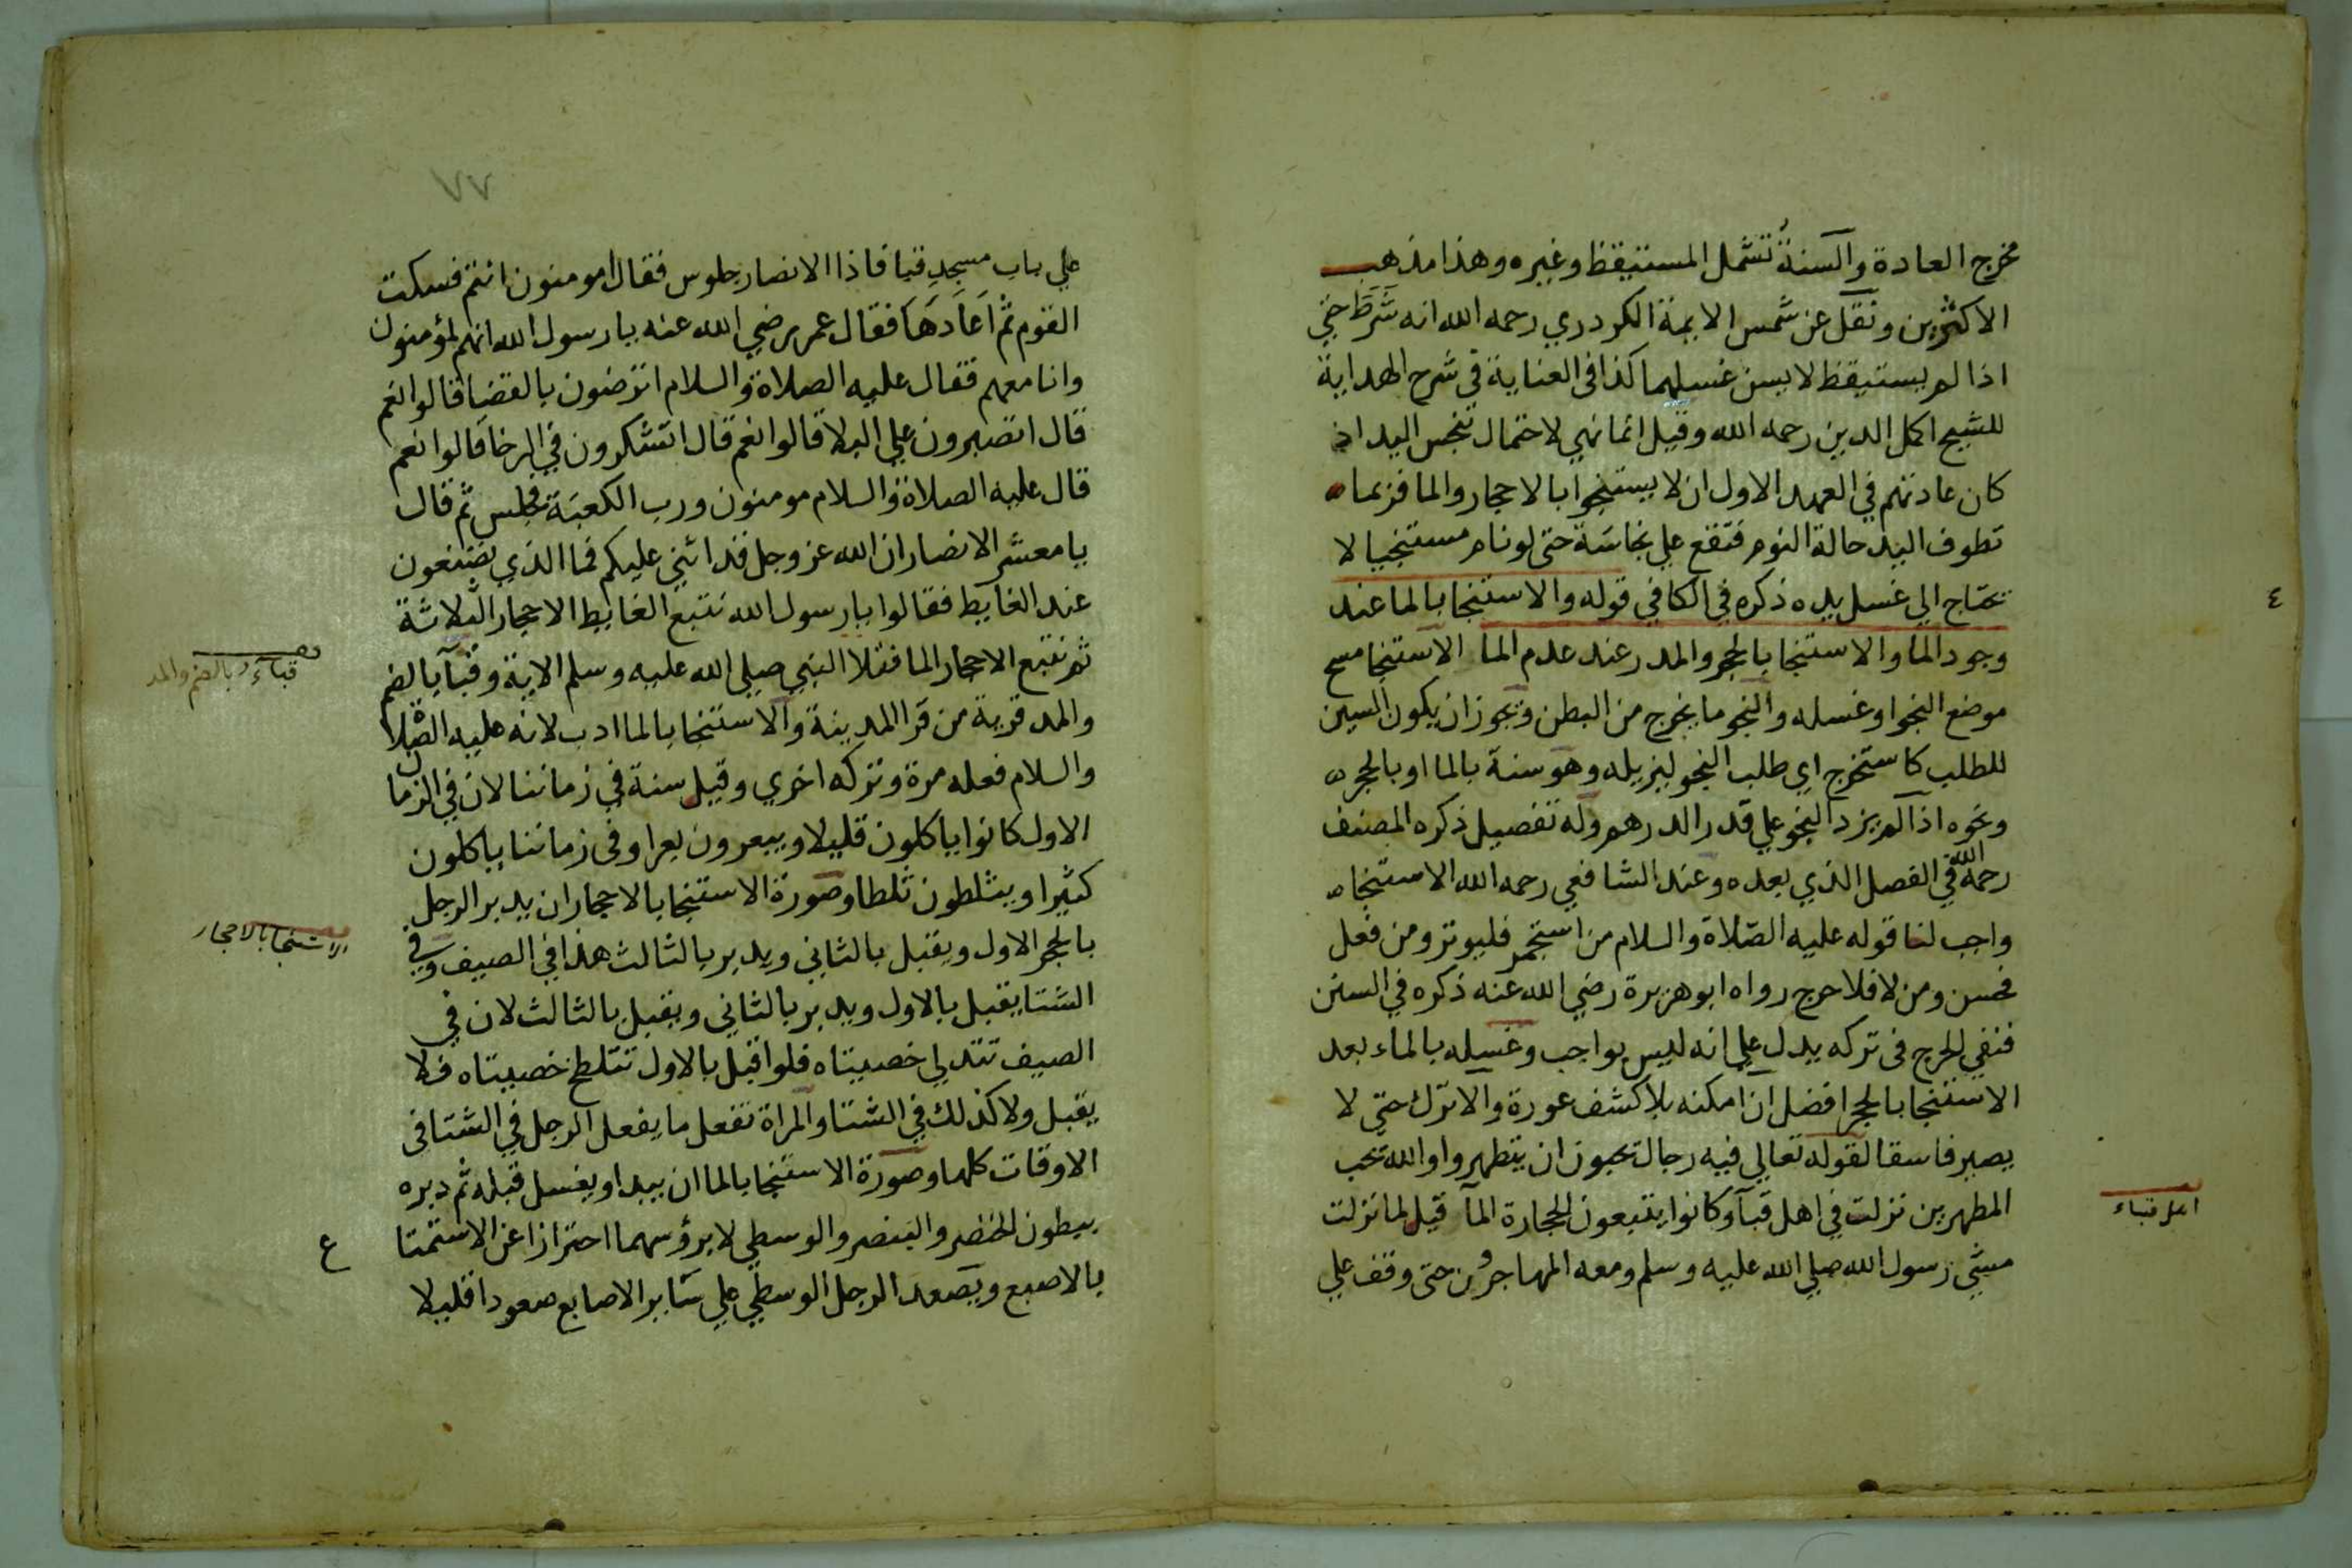 مخرج العادة والسنة تشمل المستيقظ وغيره وهذا مذهب
الاكثرين ونقل عن شمس الايمة الكردري رحمه الله انه شرط حتي
اذا لم يستيقظ لا يسن غسلهما كذا في العناية في شرح الهداية
للشيخ اكمل الدين رحمه الله وقيل انما نهي لاحتمال تنجس اليد اذ
كان عادتهم في العهد الاول ان لا يستنجوا بالاحجار والما فربما
تطوف اليد حالة النوم فتقع علي نجاسة حتى لو نام مستنجيا لا
تحتاج الي غسل يده ذكره في الكافي قوله والاستنجا بالما عند
٤
وجود الما والاستنجا بالحجر والمدر عند عدم الما الاستنجا مسح
موضع النجو او غسله والنجو ما يخرج من البطن ويجوز ان يكون السين
للطلب كاستخرج اي طلب النجو ليزيله وهو سنة بالما او بالحجر
ونحوه اذا لم يزد النجو علي قدر الدرهم وله تفصيل ذكره المصنف
رحمه الله في الفصل الذي بعده وعند الشافعي رحمه الله الاستنجا
واجب لنا قوله عليه الصلاة والسلام من استجمر فليوتر ومن فعل
فحسن ومن لا فلا حرج رواه ابو هريرة رضي الله عنه ذكره في السنن
فنفي الحرج في تركه يدل علي انه ليس بواجب وغسله بالماء بعد
الاستنجا بالحجر افضل ان امكنه بلا كشف عورة والا ترك حتى لا
يصير فاسقا لقوله تعالي فيه رجال يحبون ان يتطهروا والله يحب
المطهرين نزلت في اهل قبآ وكانوا يتبعون الحجارة المآ قيل لما نزلت
اهل قباء
مشي رسول الله صلي الله عليه وسلم ومعه المهاجرون حتى وقف علي
٧٧
علي باب مسجد قبا فاذا الانصار جلوس فقال امومنون انتم فسكت
القوم ثم اعادها فقال عمر رضي الله عنه يا رسول الله انهم لمؤمنون
وانا معهم فقال عليه الصلاة والسلام اترضون بالقضا قالوا نعم
قال اتصبرون علي البلا قالوا نعم قال اتشكرون في الرخا قالوا نعم
قال عليه الصلاة والسلام مومنون ورب الكعبة فجلس ثم قال
يا معشر الانصار ان الله عز وجل قد اثني عليكم فما الذي تصنعون
عند الغايط فقالوا يا رسول الله نتبع الغايط الاحجار الثلاثة
ثم نتبع الاحجار الما فتلا النبي صلي الله عليه وسلم الاية وقبآ بالضم
قباء بالضم والمد
والمد قرية من قرا المدينة والاستنجا بالما ادب لانه عليه الصلاة
والسلام فعله مرة وتركه اخري وقيل سنة في زماننا لان في الزمان
الاول كانوا ياكلون قليلا ويبعرون بعرا وفي زماننا ياكلون
كثيرا ويثلطون ثلطا وصورة الاستنجا بالاحجار ان يدبر الرجل
بالحجر الاول ويقبل بالثاني ويدبر بالثالث هذا في الصيف وفي
الاستنجا بالاحجار
الشتا يقبل بالاول ويدبر بالثاني ويقبل بالثالث لان في
الصيف تتدلي خصيتاه فلو اقبل بالاول تتلطخ خصيتاه فلا
يقبل ولا كذلك في الشتا والمراة تفعل ما يفعل الرجل في الشتا في
الاوقات كلها وصورة الاستنجا بالما ان يبدا ويغسل قبله ثم دبره
ببطون الخنصر والبنصر والوسطي لا برؤسهما احترازا عن الاستمتا
ع
بالاصبع ويصعد الرجل الوسطي علي سَاير الاصابع صعودا قليلا